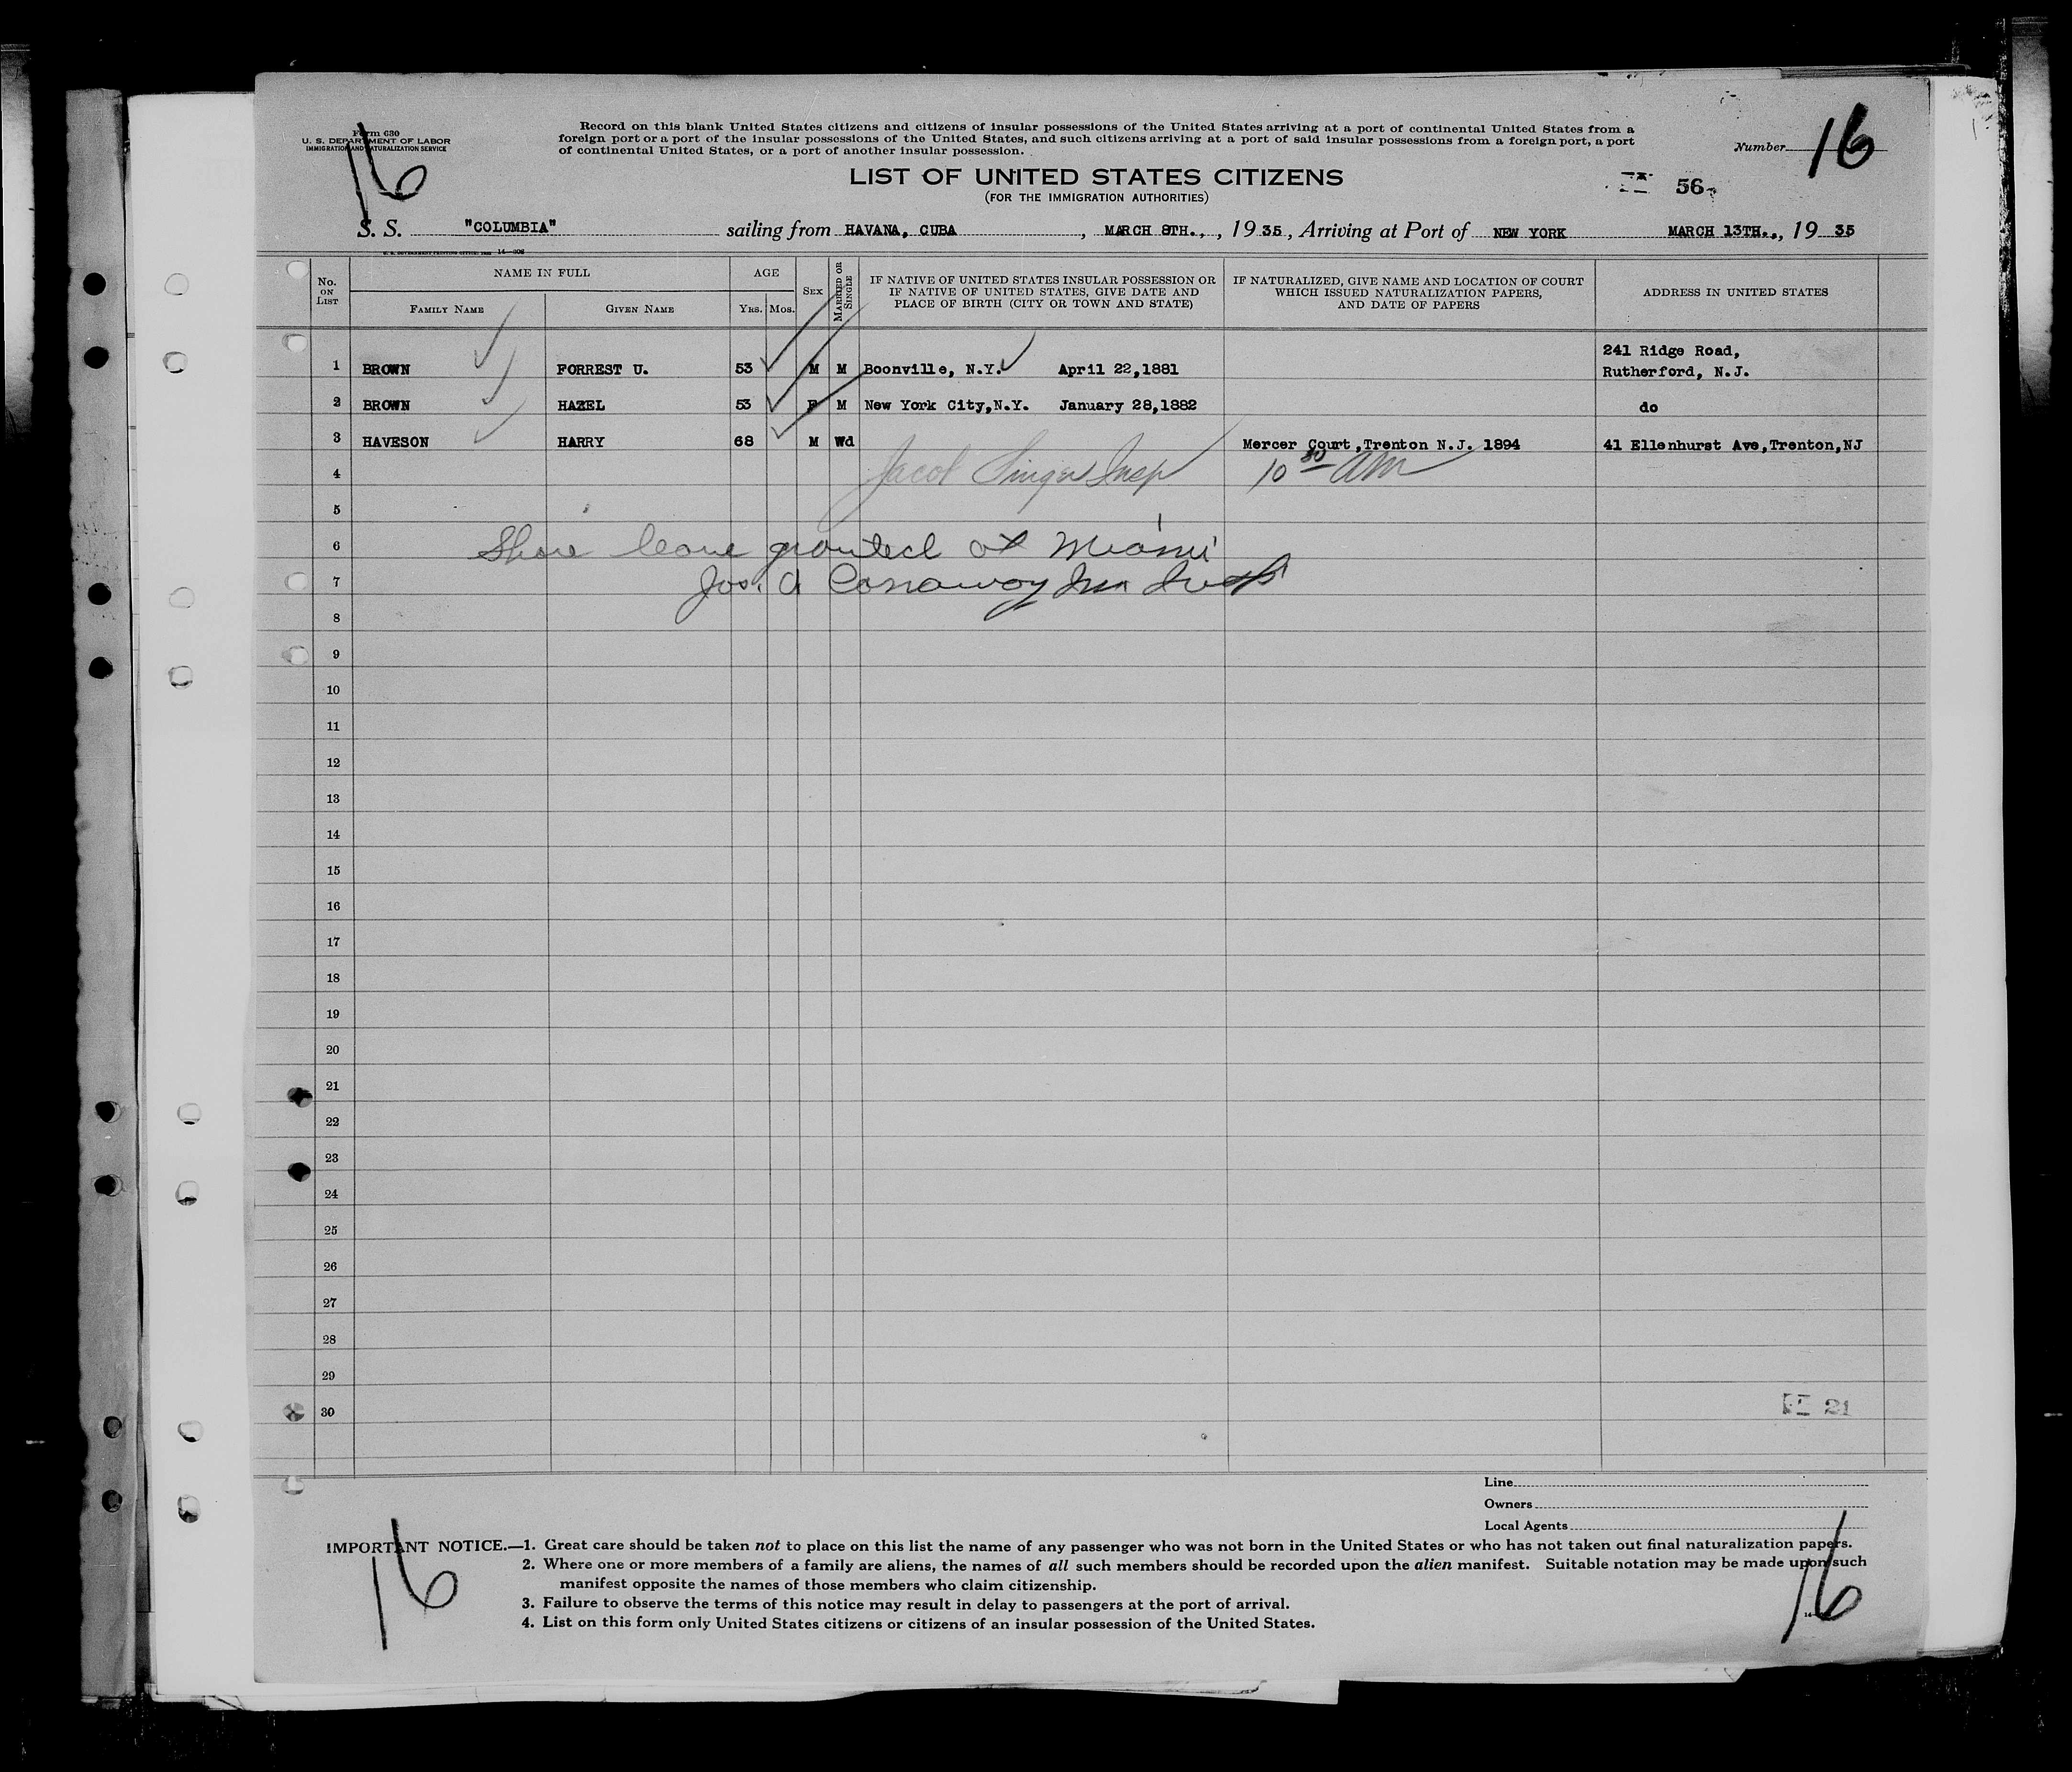 Form 630
U. S. DEPARTMENT OF LABOR
IMMIGRATION AND NATURALIZATION SERVICE
16
Record on this blank United States citizens and citizens of insular possessions of the United States arriving at a port of continental United States from a
foreign port or a port of the insular possessions of the United States, and such citizens arriving at a port of said insular possessions from a foreign port, a port
of continental United States, or a port of another insular possession.
Number 16
LIST OF UNITED STATES CITIZENS
(FOR THE IMMIGRATION AUTHORITIES)
56
S. S. "COLUMBIA" sailing from HAVANA, CUBA, MARCH 8TH., , 1935, Arriving at Port of NEW YORK MARCH 13TH., , 1935
No. ON LIST
NAME IN FULL
FAMILY NAME
GIVEN NAME
AGE
YRS. MOS.
SEX
MARRIED OR SINGLE
IF NATIVE OF UNITED STATES INSULAR POSSESSION OR
IF NATIVE OF UNITED STATES, GIVE DATE AND
PLACE OF BIRTH (CITY OR TOWN AND STATE)
IF NATURALIZED, GIVE NAME AND LOCATION OF COURT
WHICH ISSUED NATURALIZATION PAPERS,
AND DATE OF PAPERS
ADDRESS IN UNITED STATES
1 BROWN FORREST U. 53 M M Boonville, N.Y. April 22,1881 241 Ridge Road,
Rutherford, N.J.
2 BROWN HAZEL 53 F M New York City,N.Y. January 28,1882 do
3 HAVESON HARRY 68 M Wd Mercer Court,Trenton N.J. 1894 41 Ellenhurst Ave,Trenton,NJ
4 Jacob Singer Insp 10 30 AM
5
6 Shore leave granted at Miami
7 Jos. A Conaway Imm Insp
8
9
10
11
12
13
14
15
16
17
18
19
20
21
22
23
24
25
26
27
28
29
30
21
Line
Owners
Local Agents
IMPORTANT NOTICE.—1. Great care should be taken not to place on this list the name of any passenger who was not born in the United States or who has not taken out final naturalization papers.
2. Where one or more members of a family are aliens, the names of all such members should be recorded upon the alien manifest. Suitable notation may be made upon such
manifest opposite the names of those members who claim citizenship.
3. Failure to observe the terms of this notice may result in delay to passengers at the port of arrival.
4. List on this form only United States citizens or citizens of an insular possession of the United States.
16
16